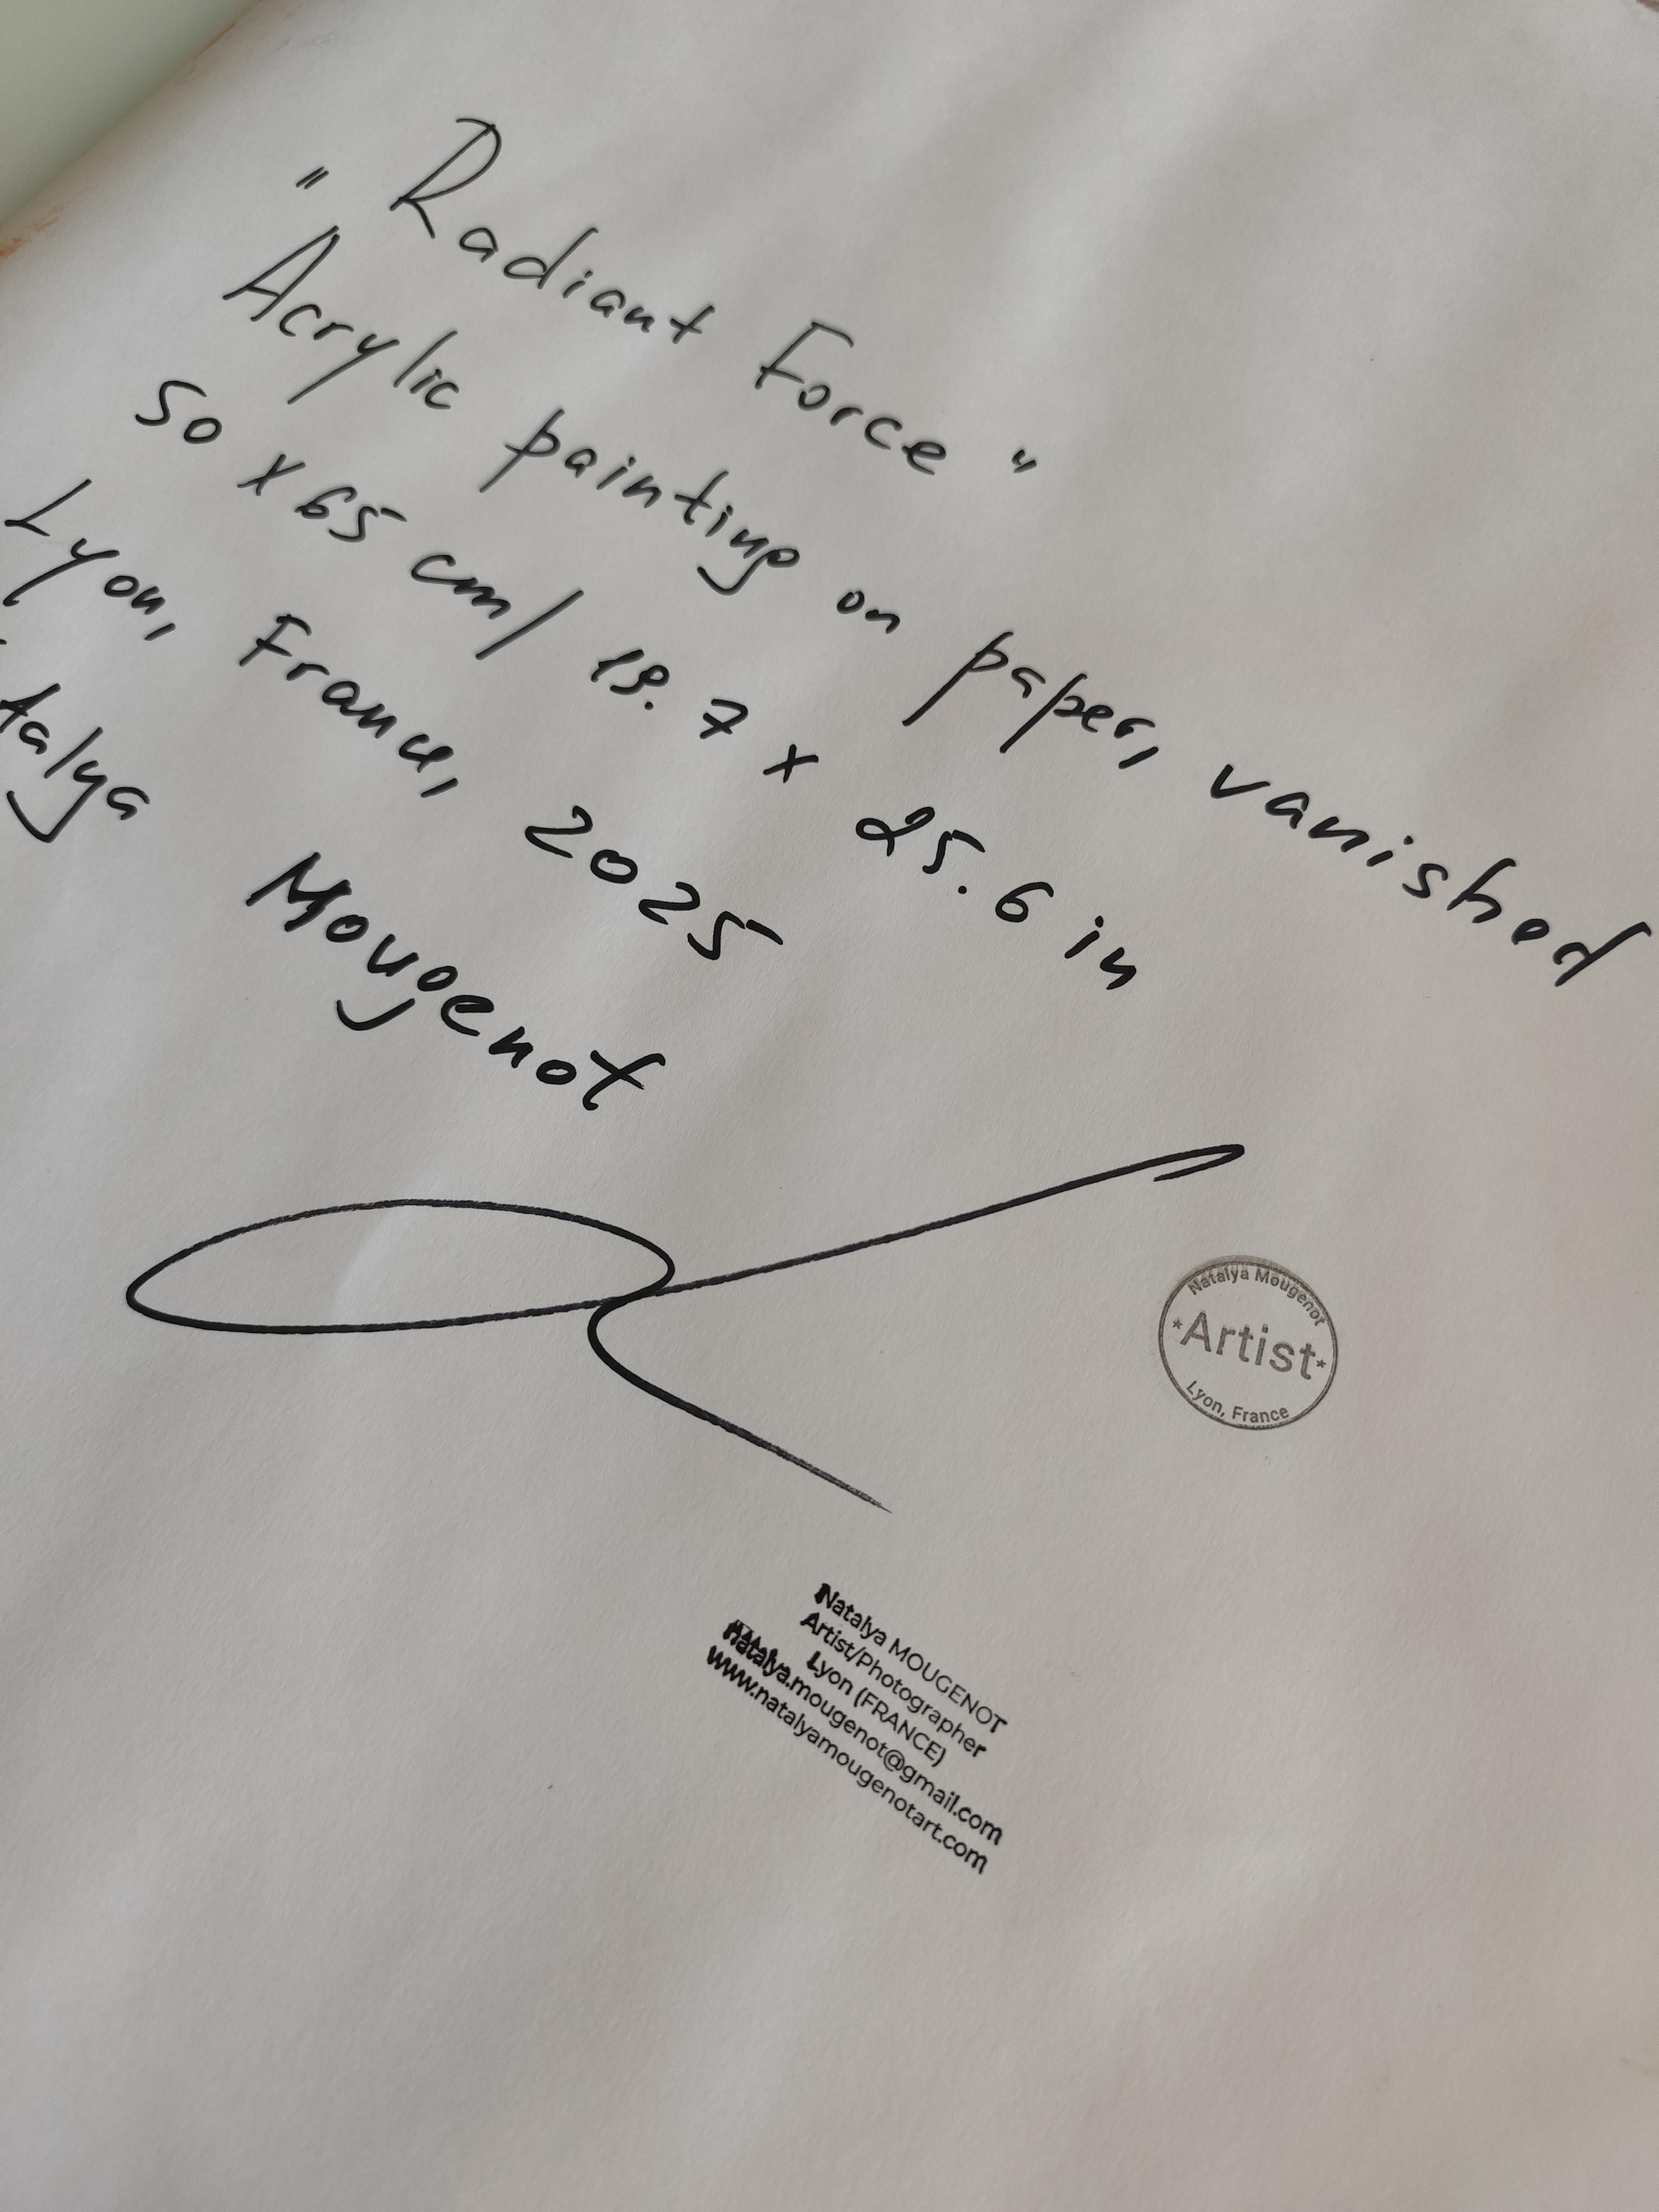 "Radiant Force"
Acrylic painting on paper, vanished
50 x 65 cm/ 19.7 x 25.6 in
Lyon, France, 2025
talya Mougenot
Natalya Mougenot
*Artist*
Lyon, France
Natalya MOUGENOT
Artist/Photographer
Lyon (FRANCE)
natalya.mougenot@gmail.com
www.natalyamougenotart.com